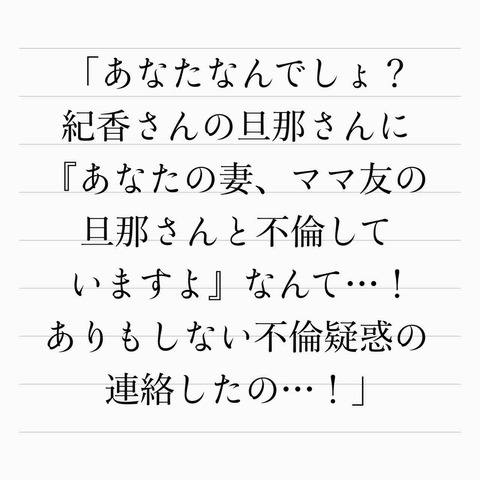 「あなたなんでしょ？
紀香さんの旦那さんに
『あなたの妻、ママ友の
旦那さんと不倫して
いますよ』なんて…！
ありもしない不倫疑惑の
連絡したの…！」